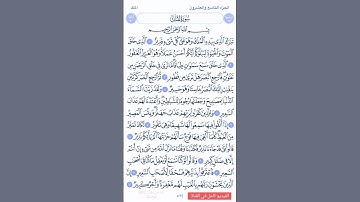 الجزء التاسع والعشرون الملك
سُورَةُ المُلْكِ
بِسْمِ اللَّهِ الرَّحْمَٰنِ الرَّحِيمِ
تَبَٰرَكَ ٱلَّذِي بِيَدِهِ ٱلْمُلْكُ وَهُوَ عَلَىٰ كُلِّ شَيْءٍ قَدِيرٌ ١ ٱلَّذِي خَلَقَ
ٱلْمَوْتَ وَٱلْحَيَوٰةَ لِيَبْلُوَكُمْ أَيُّكُمْ أَحْسَنُ عَمَلًا وَهُوَ ٱلْعَزِيزُ ٱلْغَفُورُ ٢
ٱلَّذِي خَلَقَ سَبْعَ سَمَٰوَٰتٍ طِبَاقًا مَّا تَرَىٰ فِي خَلْقِ ٱلرَّحْمَٰنِ مِن
تَفَٰوُتٍ فَٱرْجِعِ ٱلْبَصَرَ هَلْ تَرَىٰ مِن فُطُورٍ ٣ ثُمَّ ٱرْجِعِ ٱلْبَصَرَ كَرَّتَيْنِ
يَنقَلِبْ إِلَيْكَ ٱلْبَصَرُ خَاسِئًا وَهُوَ حَسِيرٌ ٤ وَلَقَدْ زَيَّنَّا ٱلسَّمَآءَ
ٱلدُّنْيَا بِمَصَٰبِيحَ وَجَعَلْنَٰهَا رُجُومًا لِّلشَّيَٰطِينِ وَأَعْتَدْنَا لَهُمْ عَذَابَ
ٱلسَّعِيرِ ٥ وَلِلَّذِينَ كَفَرُوا۟ بِرَبِّهِمْ عَذَابُ جَهَنَّمَ وَبِئْسَ ٱلْمَصِيرُ
٦ إِذَآ أُلْقُوا۟ فِيهَا سَمِعُوا۟ لَهَا شَهِيقًا وَهِيَ تَفُورُ ٧ تَكَادُ تَمَيَّزُ
مِنَ ٱلْغَيْظِ كُلَّمَآ أُلْقِيَ فِيهَا فَوْجٌ سَأَلَهُمْ خَزَنَتُهَآ أَلَمْ يَأْتِكُمْ نَذِيرٌ ٨
قَالُوا۟ بَلَىٰ قَدْ جَآءَنَا نَذِيرٌ فَكَذَّبْنَا وَقُلْنَا مَا نَزَّلَ ٱللَّهُ مِن شَيْءٍ إِنْ أَنتُمْ
إِلَّا فِي ضَلَٰلٍ كَبِيرٍ ٩ وَقَالُوا۟ لَوْ كُنَّا نَسْمَعُ أَوْ نَعْقِلُ مَا كُنَّا فِيٓ أَصْحَٰبِ
ٱلسَّعِيرِ ١٠ فَٱعْتَرَفُوا۟ بِذَنۢبِهِمْ فَسُحْقًا لِّأَصْحَٰبِ ٱلسَّعِيرِ ١١ إِنَّ
ٱلَّذِينَ يَخْشَوْنَ رَبَّهُم بِٱلْغَيْبِ لَهُم مَّغْفِرَةٌ وَأَجْرٌ كَبِيرٌ ١٢
الفيديو كامل في القناة